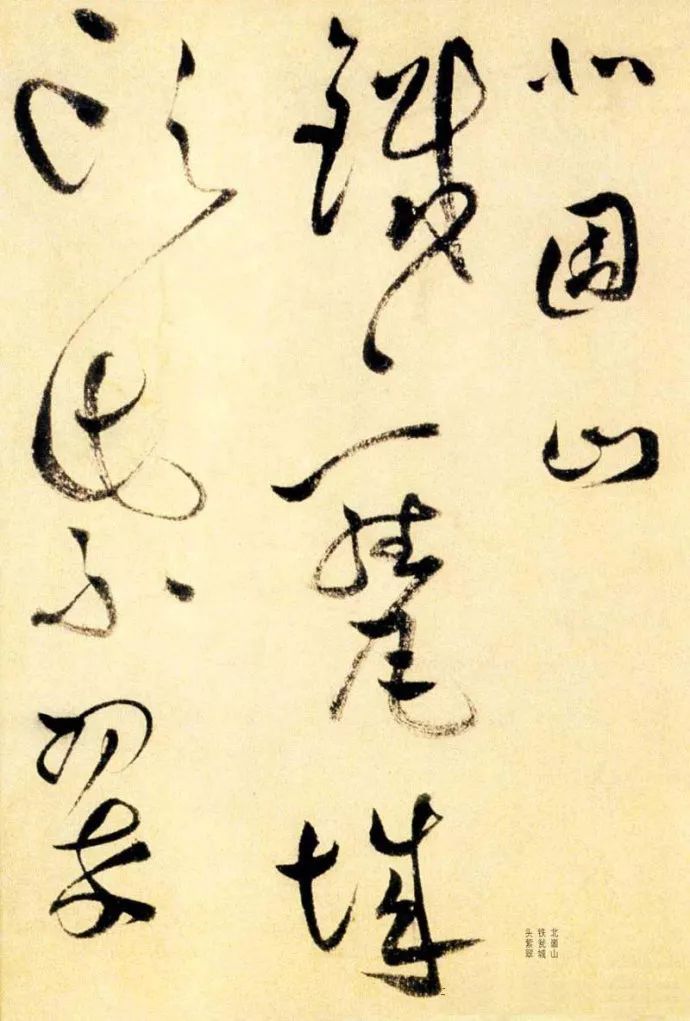 北固山
鐵甕城
頭紫翠
北固山
铁瓮城
头紫翠